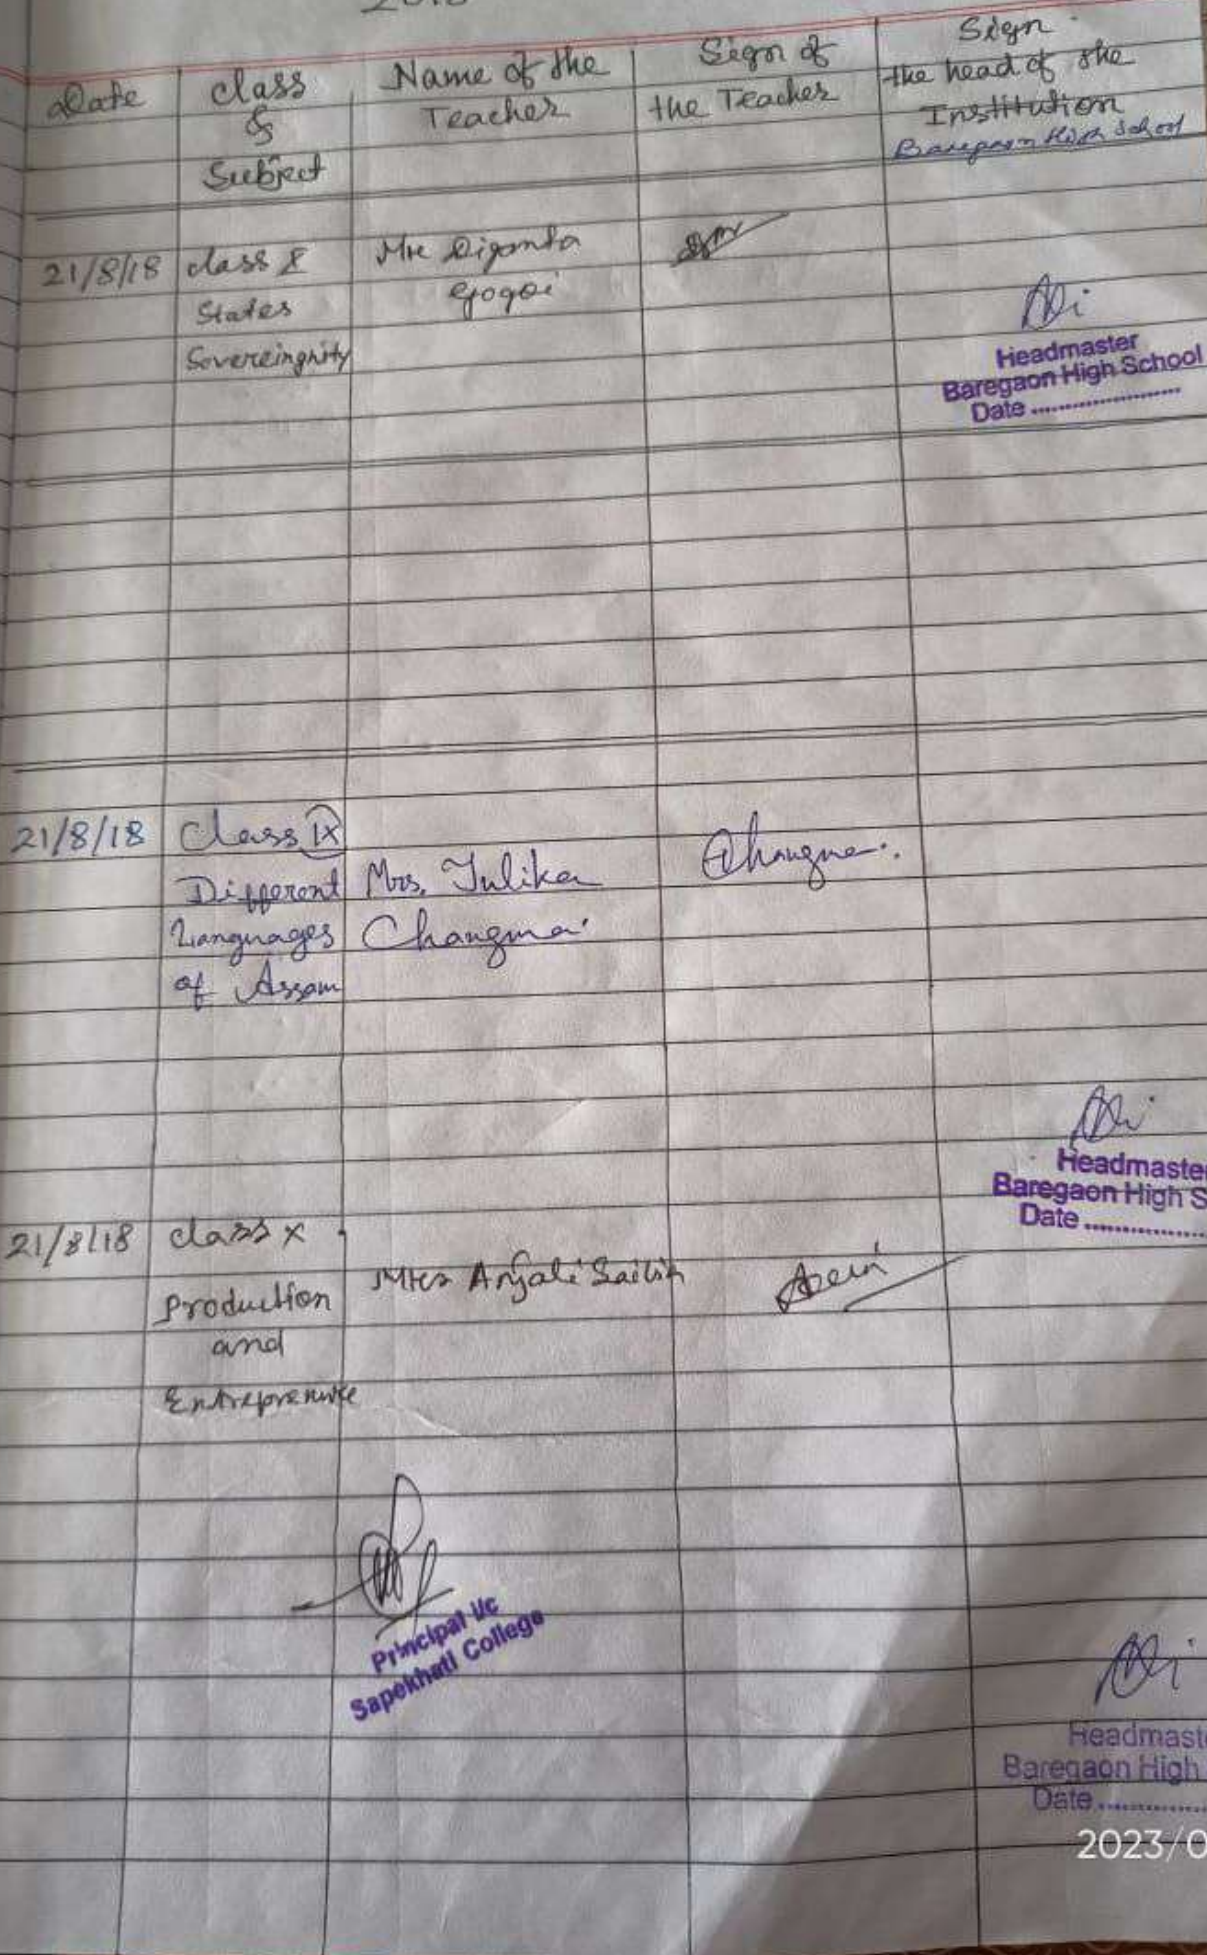 2018
Date
Class
&
Subject
Name of the
Teacher
Sign of
the Teacher
Sign
the head of the
Institution
Baregaon High School
21/8/18
class X
States
Sovereingnity
Mr Diganta
Gogoi
Headmaster
Baregaon High School
Date ........................
21/8/18
Class IX
Different
Languages
of Assam
Mrs. Tulika
Changmai
Changmai
Headmaste
Baregaon High S
Date ...................
21/8/18
class X
Production
and
Entreprenure
Anjali Saikia
Principal i/c
Sapekhati College
Headmast
Baregaon High
Date ...................
2023/0